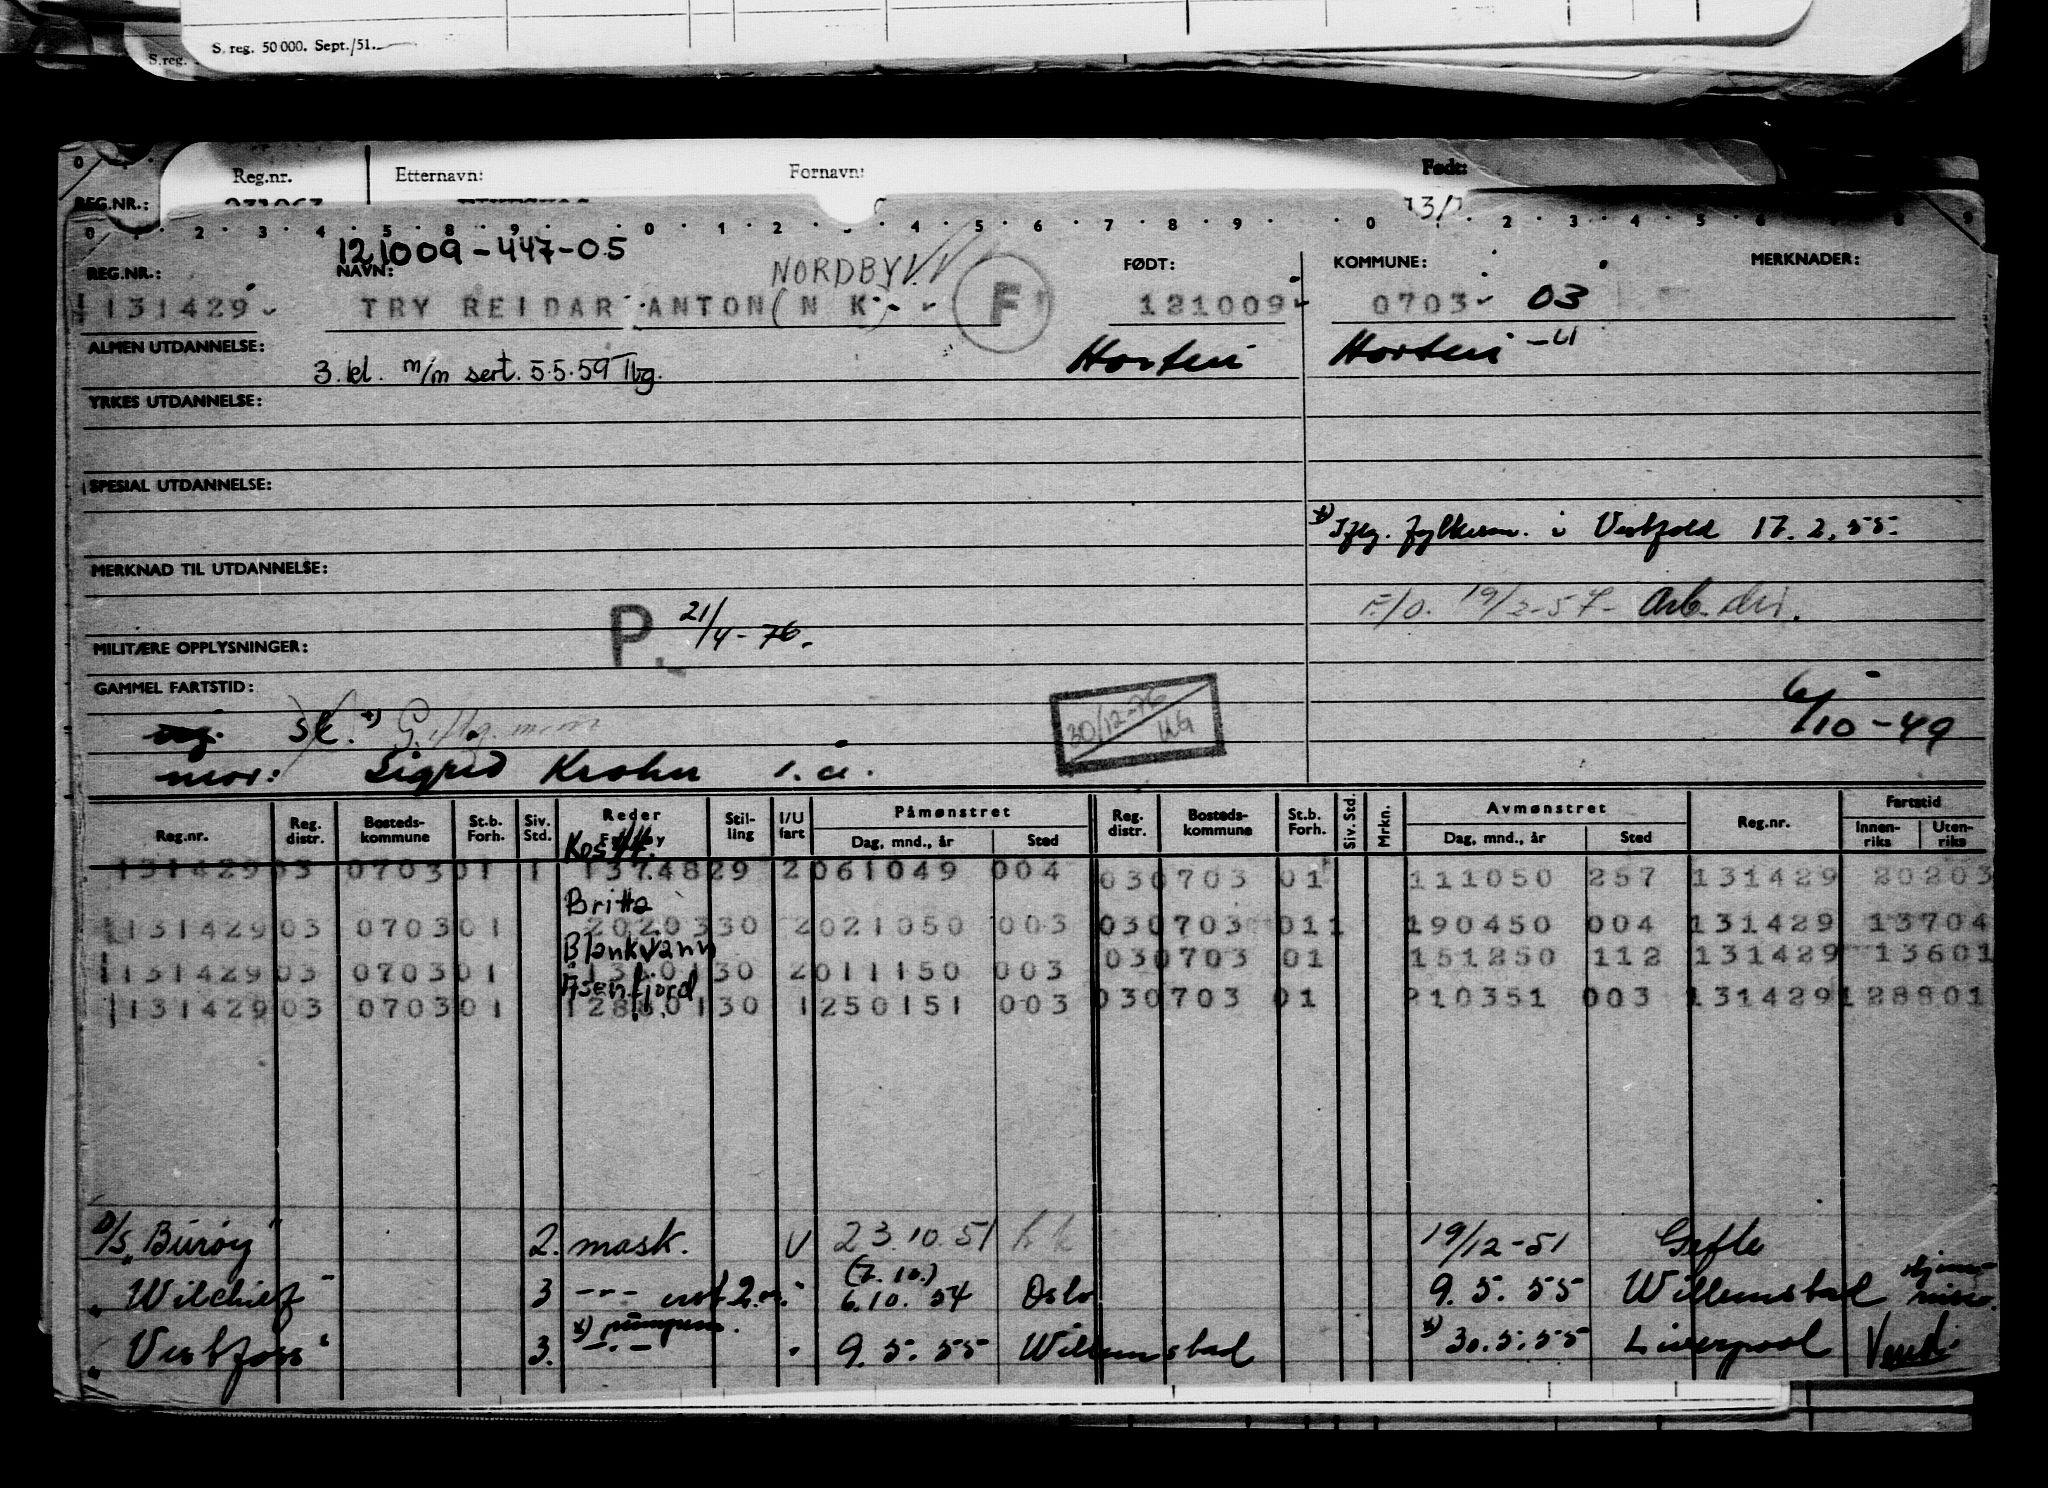 S. reg. 50 000. Sept./51.
S.reg.
Reg.nr. Etternavn: Fornavn: Født:
REG.NR.: 13/
0 1 2 3 4 5 8 9 0 1 2 3 4 5 6 7 8 9 0 1 2 3 4 5 6 7 8 9
121009-447-05
NORDBY
REG.NR.: NAVN: FØDT: KOMMUNE: MERKNADER:
131429 TRY REIDAR ANTON (N K) F 121009 0703 03
ALMEN UTDANNELSE: 3. kl. m/m sert. 5.5.59 Tbg. Horten Horten
YRKES UTDANNELSE:
SPESIAL UTDANNELSE:
x) Iflg. fylkesm. i Vestfold 17.2.55.
MERKNAD TIL UTDANNELSE:
F/O. 19/2-57- Arb. dir.
P. 21/4-76.
MILITÆRE OPPLYSNINGER:
GAMMEL FARTSTID:
ug. sk. x) 30/12-76 6/10-49
mor: Sigrid Krohn
Reg.nr. Reg. distr. Bosteds-kommune St.b. Forh. Siv. Std. Reder Stil-ling I/U fart Påmønstret Reg. distr. Bosteds-kommune St.b. Forh. Siv. Std. Mrkn. Avmønstret Reg.nr. Fartstid
Dag, mnd., år Sted Dag, mnd., år Sted Innen-riks Uten-riks
131429 03 0703 01 1 1374829 2 061049 004 03 0703 01 111050 257 131429 20203
Britta
131429 03 0703 01 2020330 2 021050 003 03 0703 011 190450 004 131429 13704
Blankvann
131429 03 0703 01 30 2 011150 003 03 0703 01 151250 112 131429 13601
Åsenfjord
131429 03 0703 01 12880130 1 250151 003 03 0703 01 210351 003 131429 128801
D/S "Burøy" 2. mask. U 23.10.51 19/12-51 Gefle
" Wilchief " 3 --- 2.m. " (7.10.) 6.10.54 Oslo 9.5.55 Willemstad
x) pumpem.
" Vestfoss " 3. -.- " 9.5.55 Willemstad x) 30.5.55 Liverpool